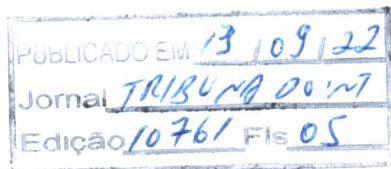 PUBLICADO EM 13 / 09 / 22
Jornal TRIBUNA DO INT
Edição 10761 Fls 05